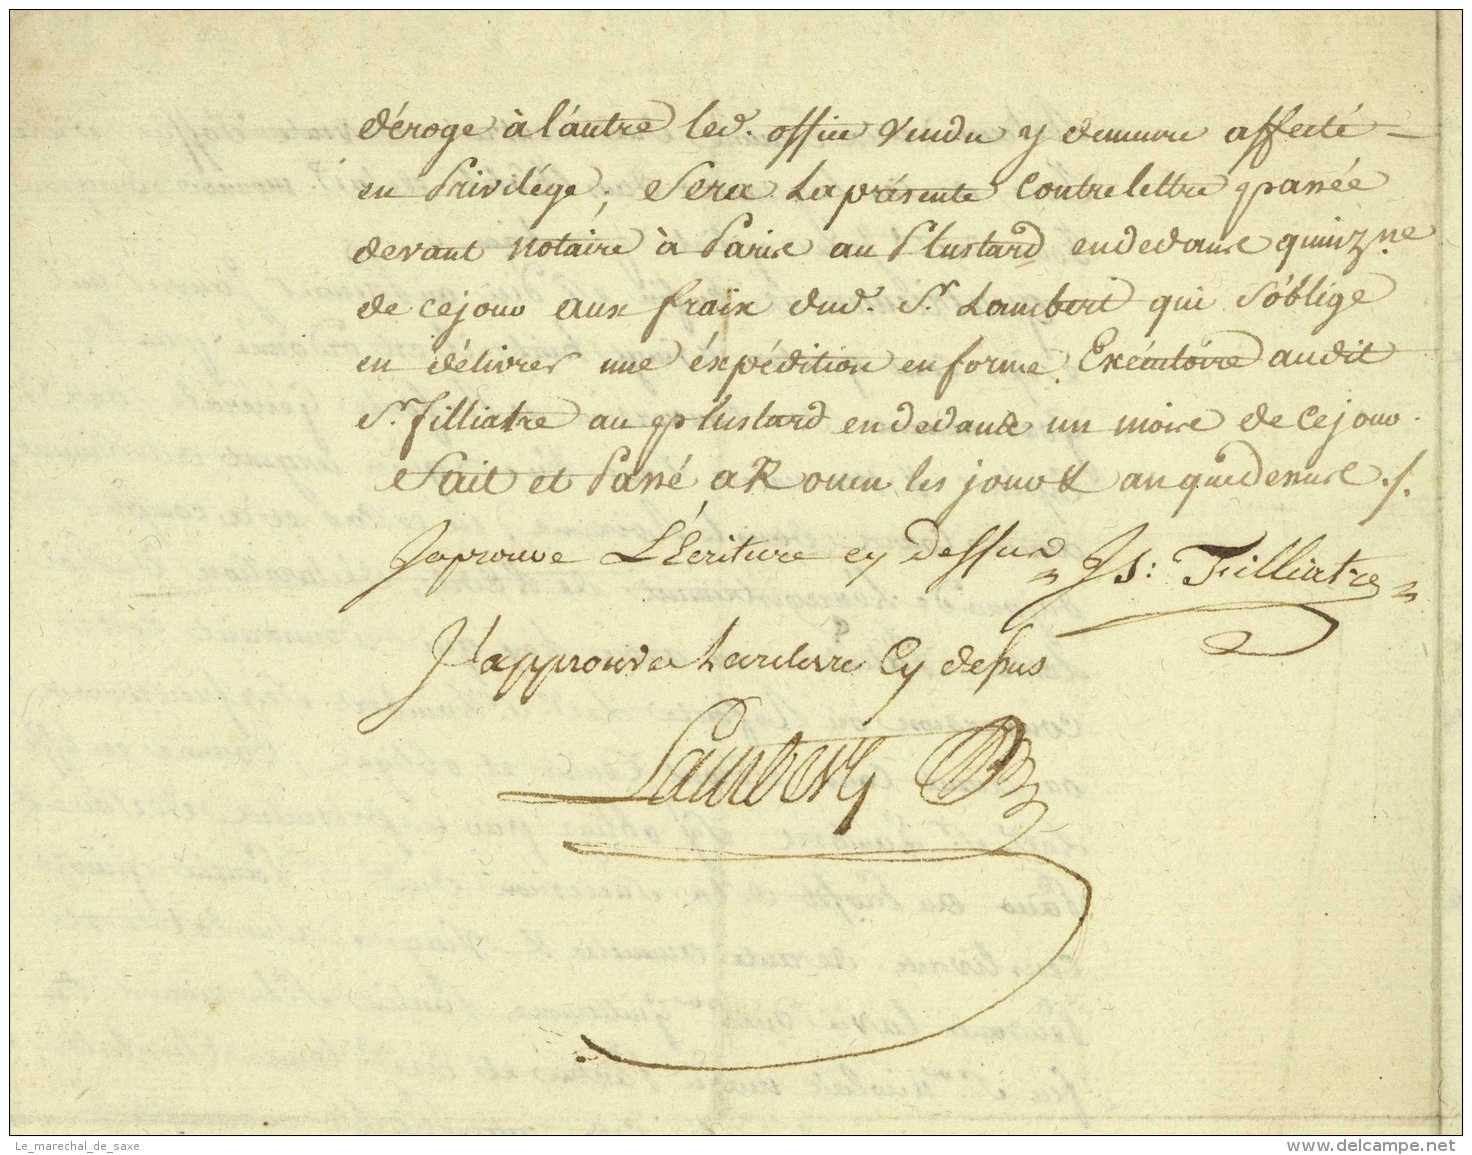 déroge à l'autre led. office vendu y demeure affecté
en Privilége; sera La présente Contrelettre passée
devant Notaire à Paris au Plustard endedans quinz.ne
de cejour aux fraix dud. S.r Lambert qui s'oblige
en délivrer une éxpédition en forme Exécutoire audit
S.r filliatre au plustard endedans un mois de cejour.
Fait et Passé a Rouen les jour & an quedessus ./.
Japrouve L'Ecriture cy dessus Js: Filliatre
J'approuve Lecriture Cy desus
Lambert
Le_marechal_de_saxe
www.delcampe.net